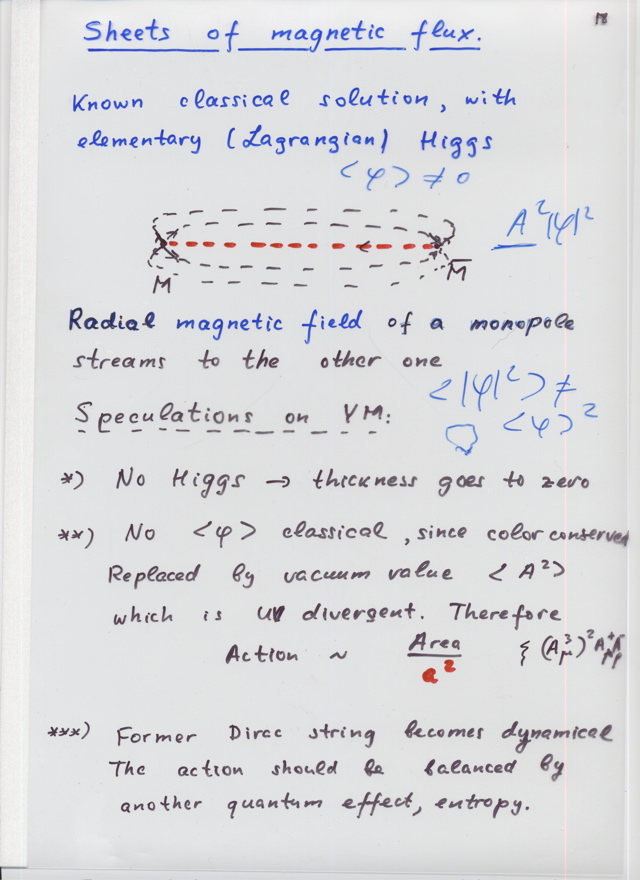 18
Sheets of magnetic flux.
Known classical solution, with
elementary (Lagrangian) Higgs
<φ> ≠ 0
A²|φ|²
M
M̅
Radial magnetic field of a monopole
streams to the other one
<|φ|²> ≠
<φ>²
Speculations on YM:
*) No Higgs → thickness goes to zero
**) No <φ> classical, since color conserved
Replaced by vacuum value <A²>
which is UV divergent. Therefore
Action ~ Area / a²
***) Former Dirac string becomes dynamical
The action should be balanced by
another quantum effect, entropy.